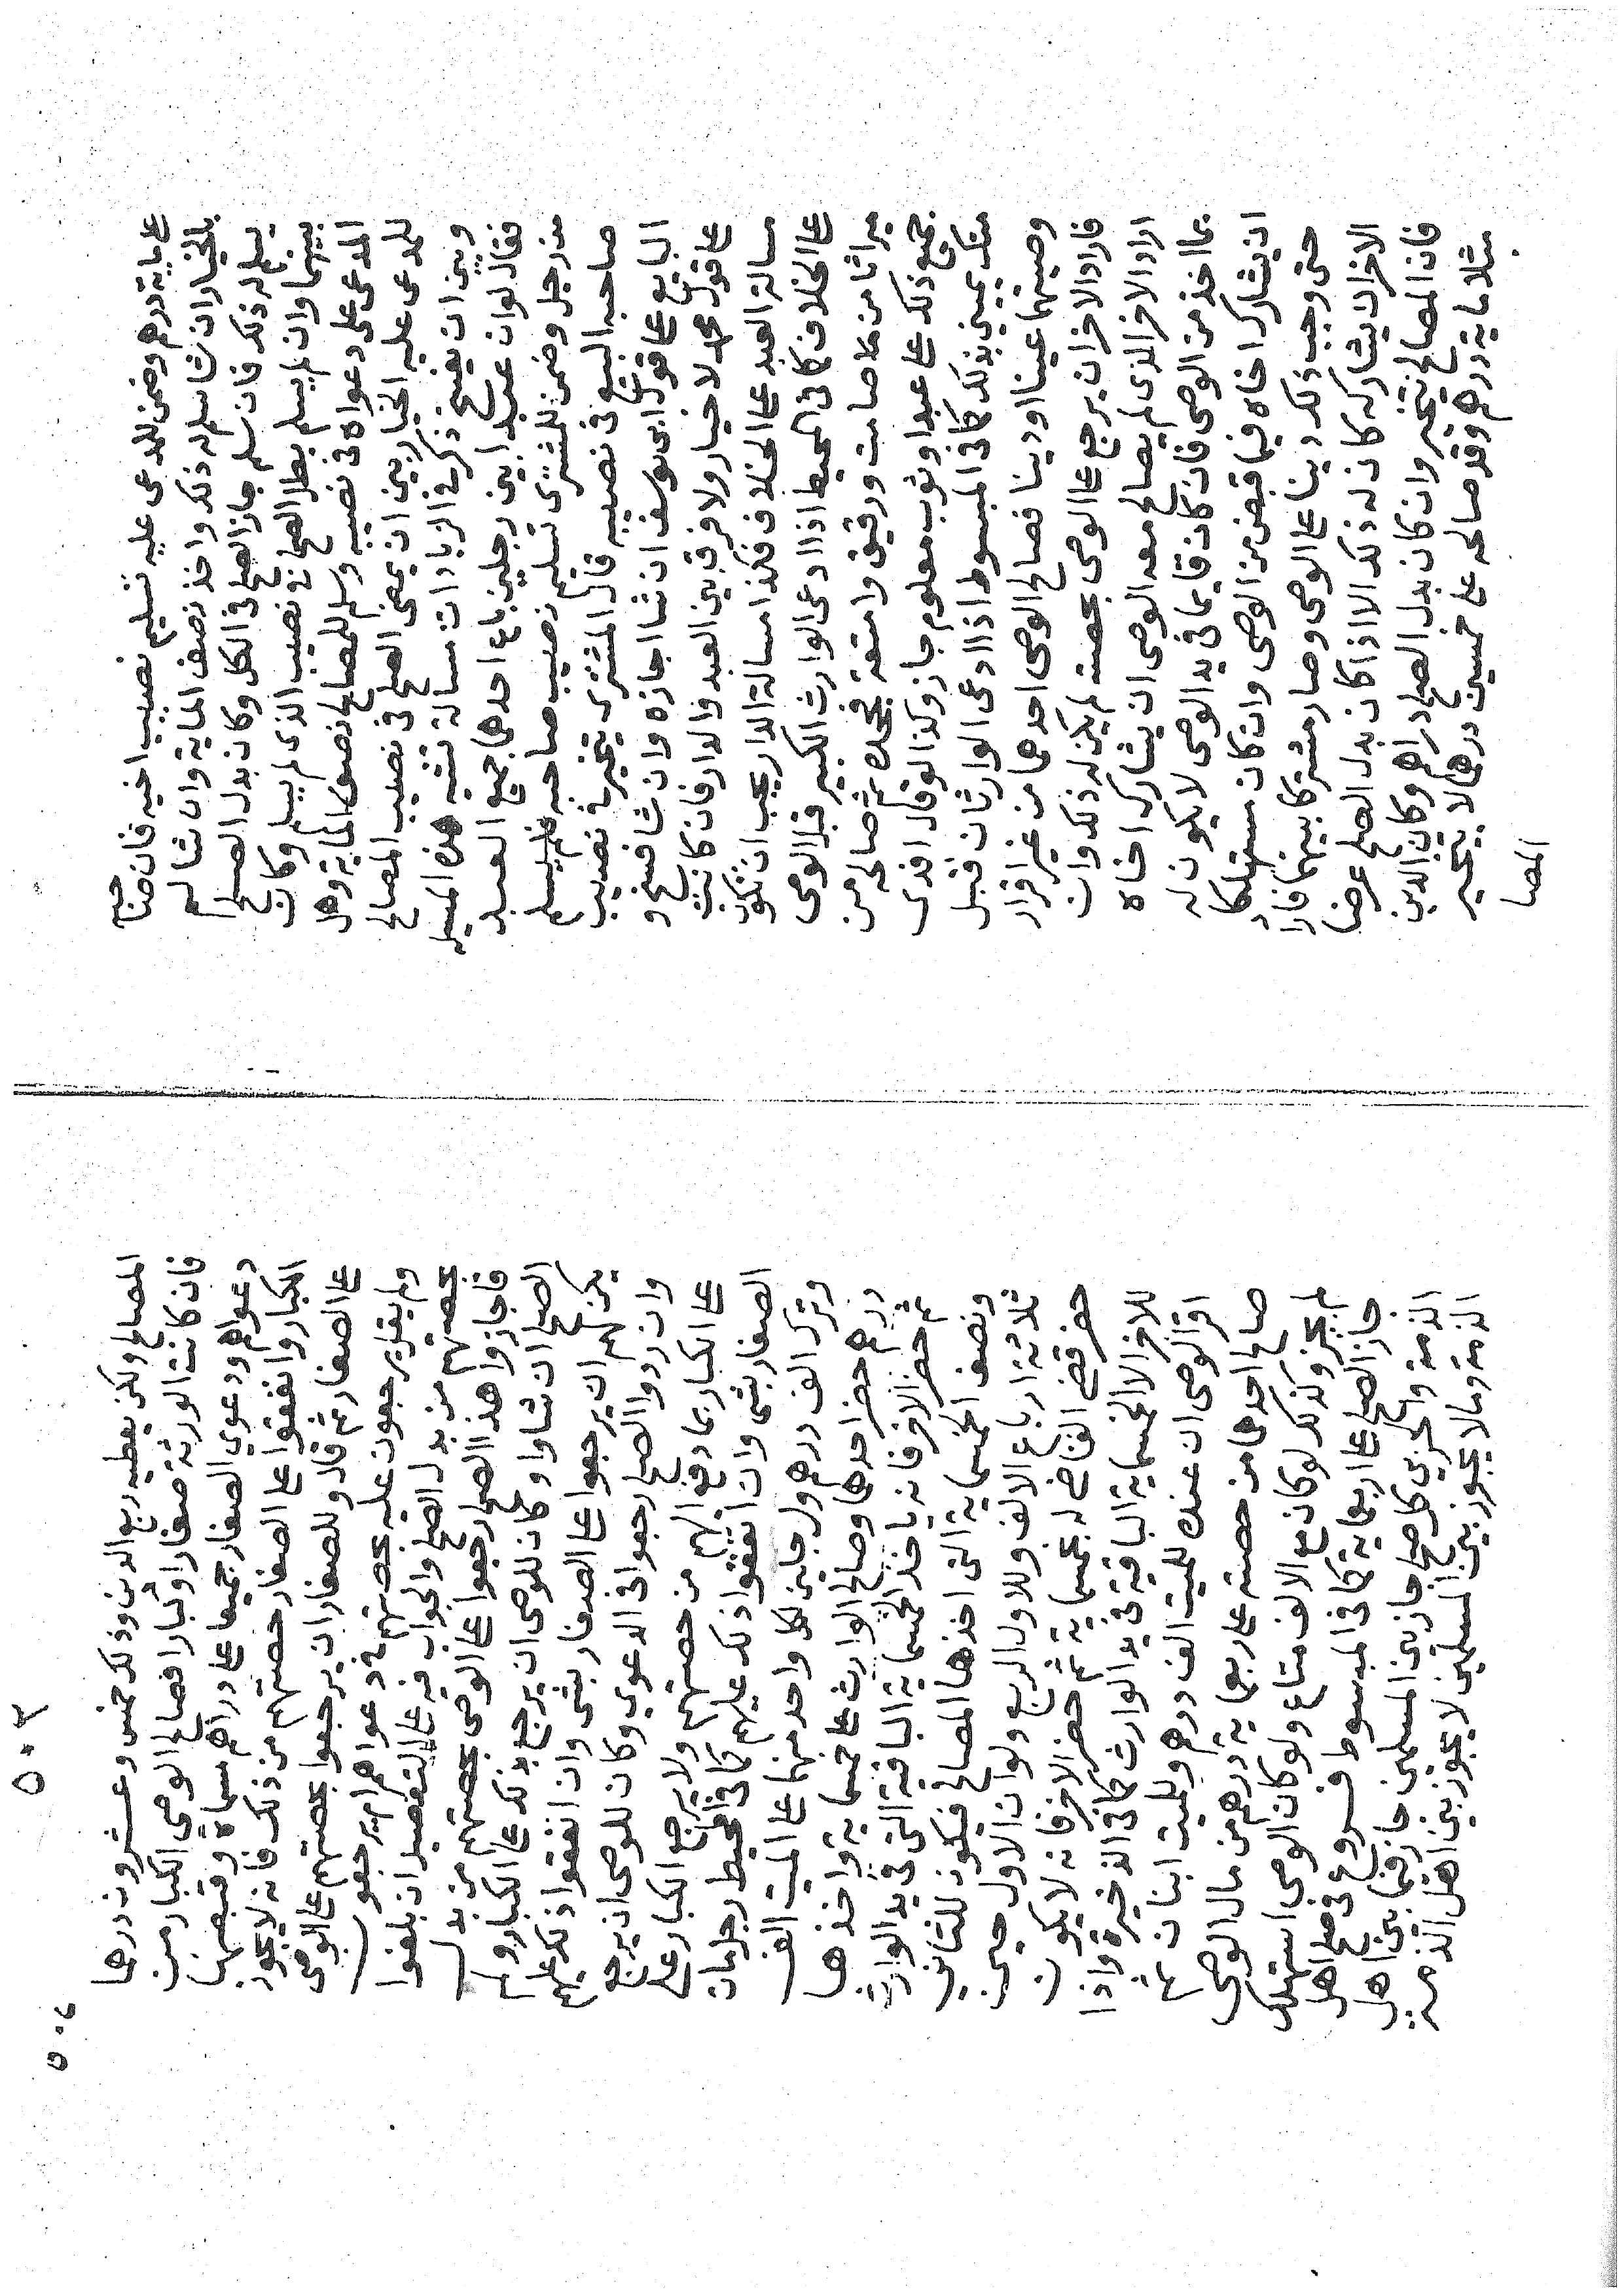 على ماية درهم وضمن للمدعى عليه تسليم نصيب اخيه فان صاحبه
بالخيار ان شا سلم له ذلك واخذ نصف الماية وان شا لم
يسلم له ذلك فان سلم جاز الصلح في الكل وكان بدل الصلح
بينهما وان لم يسلم بطل الصلح في نصيب الذى لم يسلم وكان
المدعى على دعواه في نصيبه وسلم للمصالح نصف الماية وهل
للمدعى عليه الخيار بين ان يمضى الصلح في نصيب المصالح
وبين ان يفسخ ذكر في الزيادات مسالة تشبه هذه المسيله
فقال لو ان عبدا بين رجلين باع احدهما جميع العبد
من رجل وضمن للمشترى تسليم نصيب صاحبه فلم يسلم
صاحبه البيع في نصيبه قال المشترى يتخير في نصيب
البايع على قول ابى يوسف ان شا اجازه وان شا فسخ و
على قول محمد لا خيار ولا فرق بين العبد والدار فان كانت
مسالة العبد على الخلاف فكذا مسالة الدار يجب ان تكون
على الخلاف كما في المحيط اذا ادعى الوارث الكبير قبل الوصى
ميراثا من مال صامت ورقيق وامتعة فجحده ثم صالحه من
جميع ذلك على عبد او ثوب معلوم جاز وكذا لو قال افدى
منك يمينى بذلك كما في المبسوط اذا ادعى الوارثان قبل
وصيتهما عينا او دينا فصالح الوصى احدهما من غير اقرار
فاراد الاخر ان يرجع على الوصى بحصته لم يكن له ذلك وان
اراد الاخر الذى لم يصالح معه الوصى ان يشارك اخاه
بما اخذ من الوصى فان كان قايما في يد الوصى لا يكون له
ان يشارك اخاه فيما قبض من الوصى وان كان مستهلكا
حتى وجب ذلك دينا على الوصى وصار مشتركا بينهما فاراد
الاخر ان يشاركه كان له ذلك الا اذا كان بدل الصلح عرضا
فان المصالح يتخير وان كان بدل الصلح دراهم وكان الدين
مثلا ماية درهم وقد صالحه على خمسين درهما لا يتخير
المصا
المصالح ولكن يعطيه ربع الدين وذلك خمس وعشرون درهما
فان كانت الورثة صغارا وكبارا فصالح الوصى الكبار من
دعواهم ودعوي الصغار جميعا على دراهم مسماة وقبضها
الكبار وانفقوا على الصغار حصتهم من ذلك فانه لا يجوز
على الصغار ثم قال وللصغار ان يرجعوا بحصتهم على الوصى
ولم يقل يرجعون عليه بحصتهم في دعواهم ام يرجعون
بحصتهم من بدل الصلح والجواب فيه على التفصيل ان بلغوا
فاجازوا هذا الصلح رجعوا على الوصى بحصتهم من بدل
الصلح ان شاوا وكان للوصى ان يرجع بذلك على الكبار ولم
يكن لهم ان يرجعوا على الصغار بشى وان انفقوا ذلك عليهم
وان ردوا الصلح رجعوا في الدعوي وكان للوصى ان يرجع
على الكبار بما دفع اليهم من حصتهم ولا يرجع الكبار على
الصغار بشى وان انفقوا ذلك عليهم كما في المحيط رجل مات
وترك الف درهم ولرجلين لكل واحد منهما على الميت الف
درهم حضر احدهما وصالح الوارث على خمسماية واخذها
ثم حضر الاخر فانه ياخذ الخمسماية الباقية التى في يد الوارث
ونصف الخمسماية التى اخذها المصالح فيكون للثانى
ثلاثة ارباع الالف وللاول الربع ولو ان الاول حين
حضر قضى القاضى له بخمسماية ثم حضر الاخر فانه لا يكون
للاخر الا الخمسماية الباقية في يد الوارث كما في الذخيرة واذا
اقر الوصى ان عنده للميت الف درهم وللميت ابنان ثم
صالح احدهما من حصته على اربعماية درهم من مال الوصى
لم يجز وكذلك لو كان مع الالف متاع ولو كان الوصى استهلك
جاز الصلح على اربعماية كما في المبسوط فروع في صلح اهل
الذمة والحربى كل صلح جاز بين المسلمين جاز فيما بين اهل
الذمة وما لا يجوز بين المسلمين لا يجوز بين اهل الذمة
٥٠٢